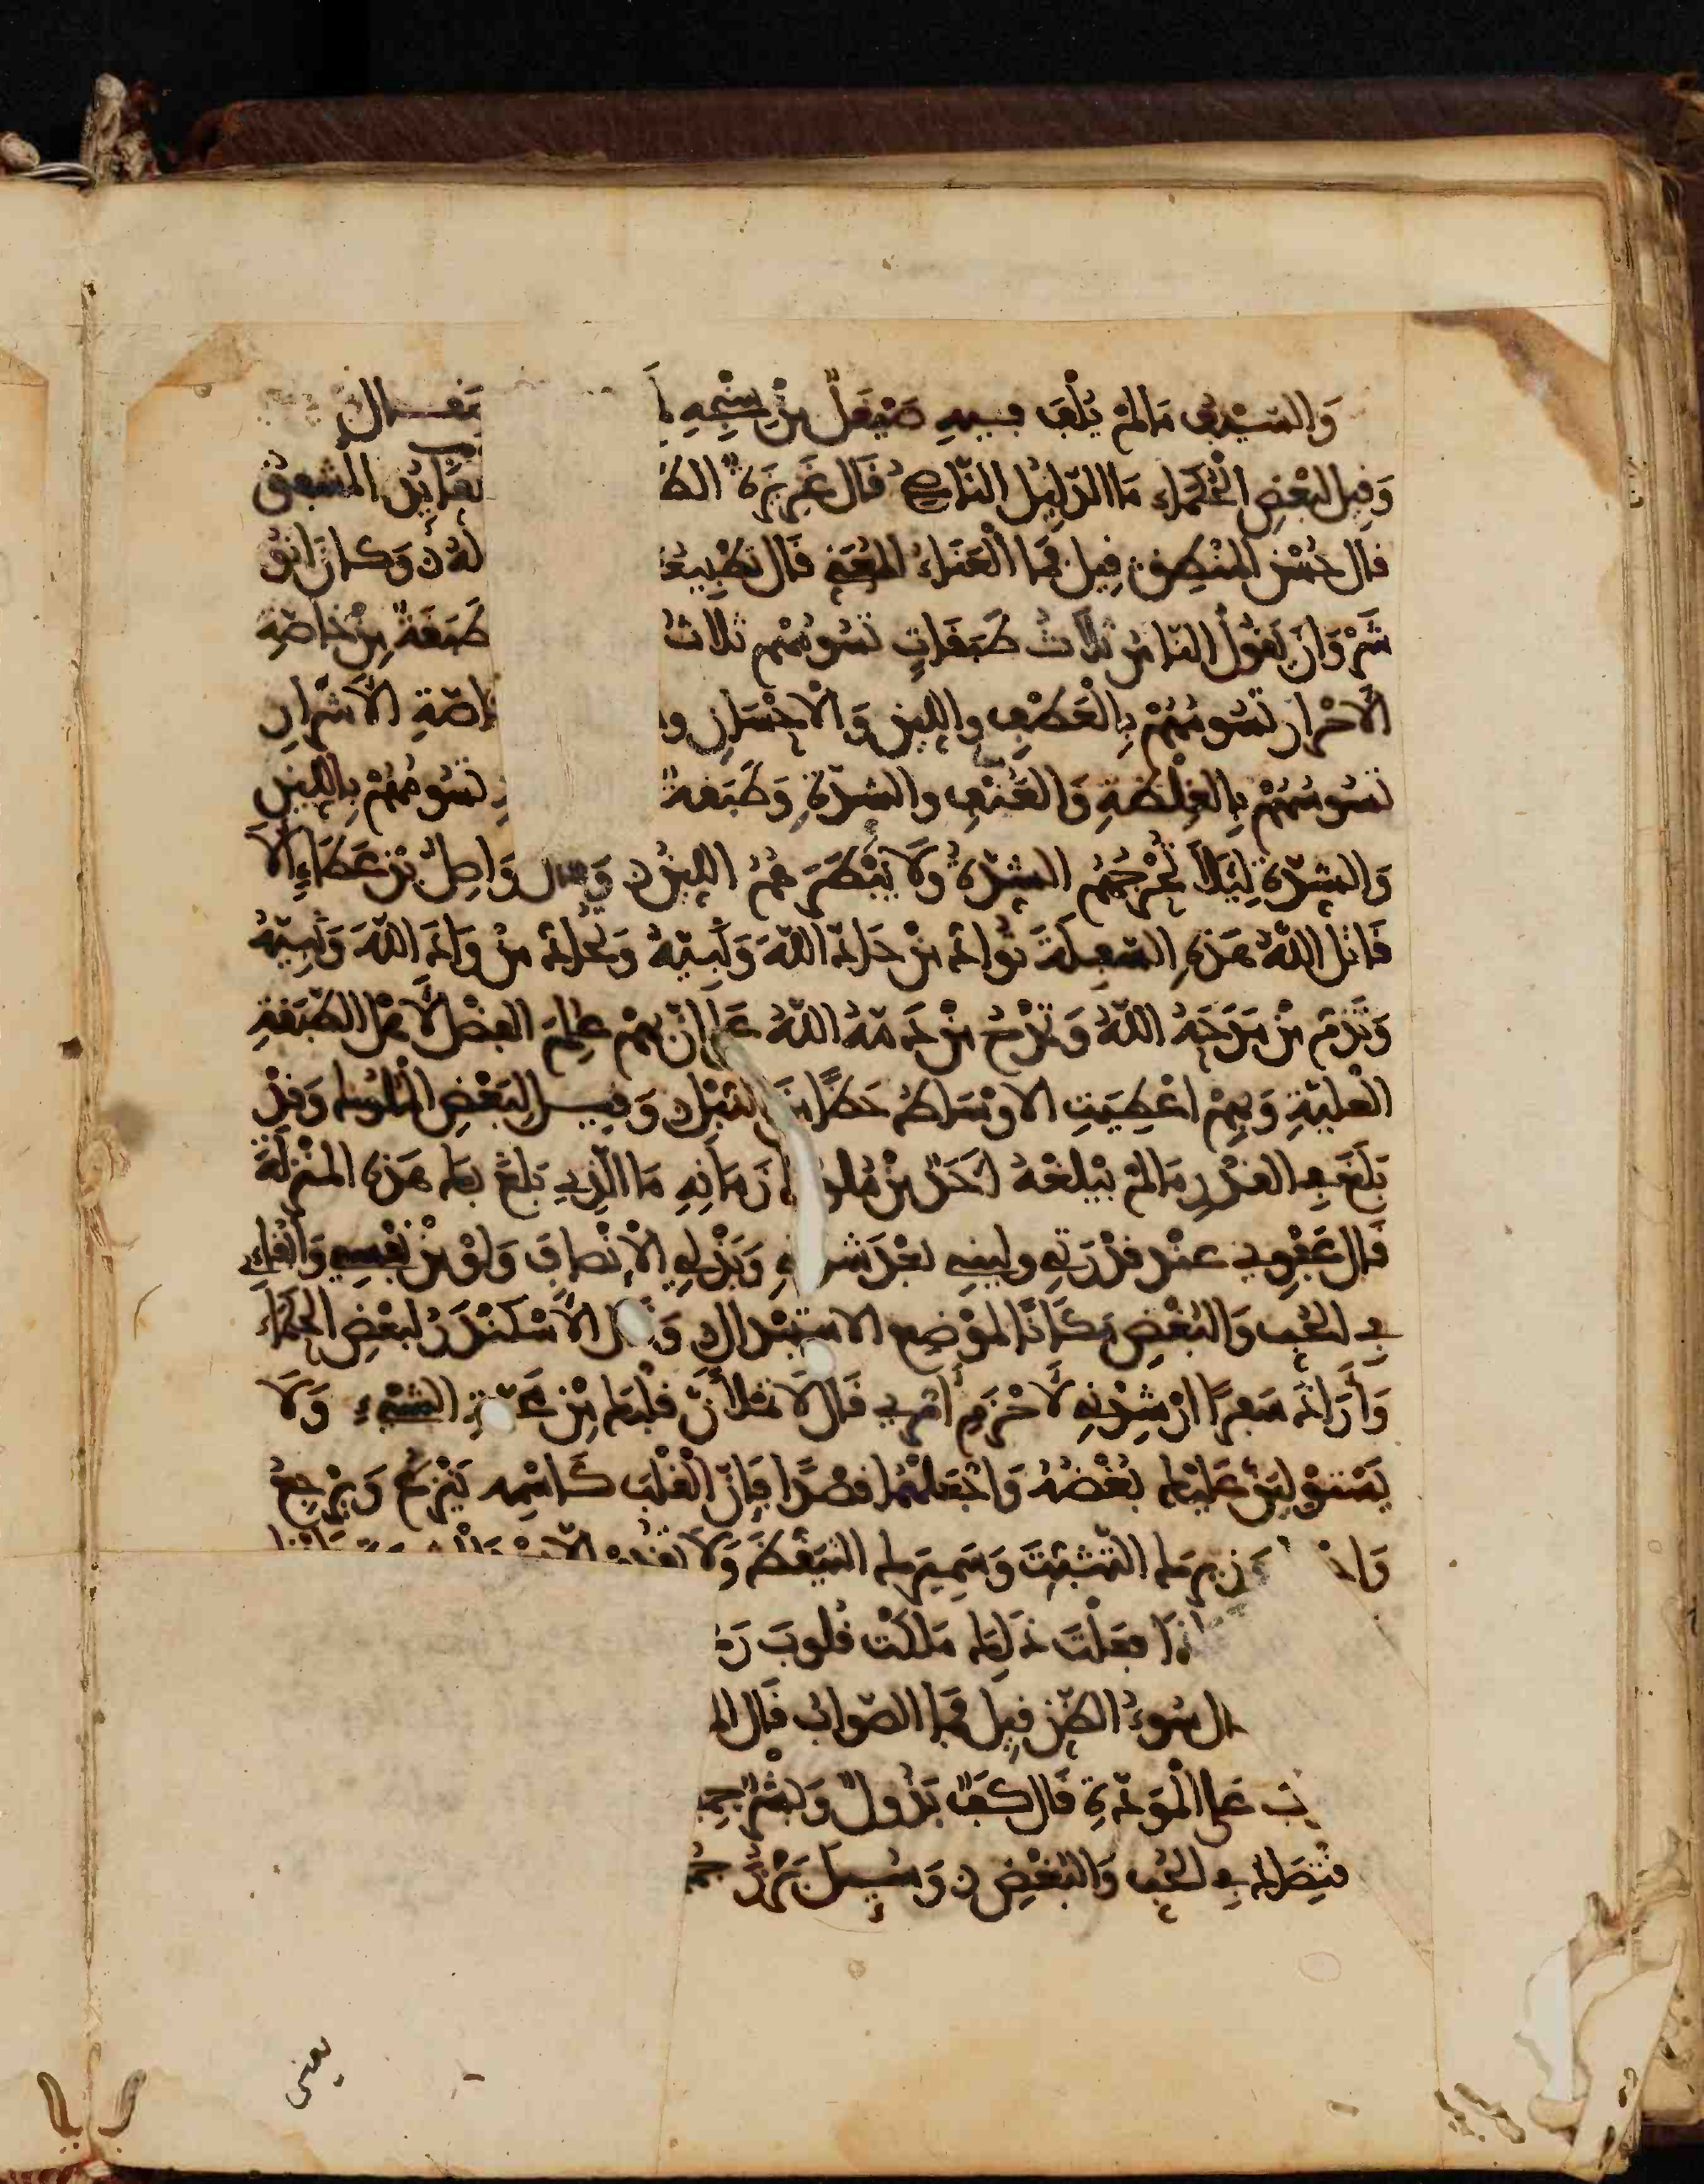 وَالسَّيْفُ مَا لَمْ يُلْفَ فِيهِ صَيْقَلٌ مِنْ سِنْخِهِ لَمْ يَنتفع بصقال
وَقِيلَ لِبَعْضِ الْحُكَمَاءِ مَا الدَّلِيلُ النَّاصِحُ قَالَ غَرِيزَةُ الط قِيلَ فَمَا الْقَايِدُ الْمُشْفِقُ
قَالَ حُسْنُ الْمَنْطِقِ قِيلَ فَمَا الْعَنَاءُ الْمُعَنِّي قَالَ تَطْبِيعُ لَهُ وَكَانَ انُو
شَرْوَانَ يَقُولُ النَّاسُ ثَلَاثُ طَبَقَاتٍ تَسُوسُهُمْ ثَلَاثُ طَبَقَةٌ مِنْ خَاصَّةِ
الْأَحْرَارِ تَسُوسُهُمْ بِالْعَطْفِ وَاللِّينِ وَالْإِحْسَانِ و خَاصَّةِ الْأَشْرَارِ
تَسُوسُهُمْ بِالْغِلْظَةِ وَالْعُنْفِ وَالشِّدَّةِ وَطَبَقَةٌ تَسُوسُهُمْ بِاللِّينِ
وَالشِّدَّةِ لِيَلَّا تُحْرِجَهُمُ الشِّدَّةُ وَلَا يُبْطِرَهُمُ اللِّينُ وَقَالَ وَاصِلُ بْنُ عَطَاءٍ أَلَا
قَاتَلَ اللَّهُ هَذِهِ السَّفِلَةَ تُوَادُّ مَنْ حَادَّ اللَّهَ وَنَبِيَّهُ وَتُحَادُّ مَنْ وَادَّ اللَّهَ وَنَبِيَّهُ
وَتَذُمُّ مَنْ مَدَحَهُ اللَّهُ وَتَمْدَحُ مَنْ ذَمَّهُ اللَّهُ عَلَى أَنَّ بِهِمْ عُلِمَ الْفَضْلُ لِأَهْلِ الطَّبَقَةِ
الْعُلْيَةِ وَبِهِمْ اعْطِيَتِ الْأَوْسَاطُ حَظًّا مِنَ النُّبْلِ وَقِيلَ لِبَعْضِ الْمُلُوكِ وَقَدْ
بَلَغَ فِي الْقَدْرِ مَا لَمْ يَبْلُغْهُ أَحَدٌ مِنْ مُلُوكِ زَمَانِهِ مَا الَّذِي بَلَغَ بِكَ هَذِهِ الْمَنْزِلَةَ
قَالَ عَفْوِي عِنْدَ قُدْرَتِي وَلِينِي عِنْدَ شِدَّتِي وَبَذْلِي الْإِنْصَافَ وَلَوْ مِنْ نَفْسِي وَإِبْقَاءِي
فِي الْحُبِّ وَالْبُغْضِ مَكَانًا لِمَوْضِعِ الِاسْتِبْدَالِ وَقَالَ الْأَسْكَنْدَرُ لِبَعْضِ الْحُكَمَاءِ
وَأَرَادَ سَفَرًا أَرْشِدْنِي لِأَحْزَمِ أَمْرِي قَالَ لَا تَمْلَأَنَّ قَلْبَكَ مِنْ مَحَبَّةِ الشَّيْءِ وَلَا
يَسْتَوْلِيَنَّ عَلَيْكَ بُغْضُهُ وَاجْعَلْهُمَا قَصْدًا فَإِنَّ الْقَلْبَ كَاسْمِهِ يَنْزِعُ وَيَرْجِعُ
وَاجْ وَزِيرَكَ التَّثَبُّتَ وَسَمِيرَكَ التَّيَقُّظَ وَلَا
فَإِذَا فَعَلْتَ ذَلِكَ مَلَكْتَ قُلُوبَ رَ
ال سُوءُ الظَّنِّ قِيلَ فَمَا الصَّوَابُ قَالَ ال
ب عَلَى الْمَوَدَّةِ قَالَ كَفٌّ بَذُولٌ وَبِشْرٌ جَمِ
قَصْدٌ فِي الْحُبِّ وَالْبُغْضِ وَسُئِلَ بَزُرْجُمْ
يعنى